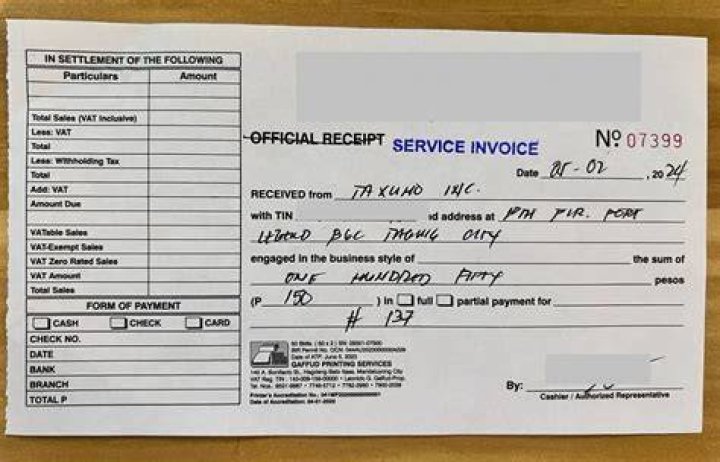 IN SETTLEMENT OF THE FOLLOWING
Particulars Amount
Total Sales (VAT Inclusive)
Less: VAT
Total
Less: Withholding Tax
Total
Add: VAT
Amount Due
VATable Sales
VAT-Exempt Sales
VAT Zero Rated Sales
VAT Amount
Total Sales
FORM OF PAYMENT
CASH CHECK CARD
CHECK NO.
DATE
BANK
BRANCH
TOTAL P
OFFICIAL RECEIPT SERVICE INVOICE No. 07399
Date 05-02, 2024
RECEIVED from TAXUMO INC.
with TIN address at FLR. FORT
LEGEND BGC TAGUIG CITY
engaged in the business style of the sum of
ONE HUNDRED FIFTY pesos
(P 150 ) in full partial payment for
# 137
GAFFUD PRINTING SERVICES
By:
Cashier / Authorized Representative